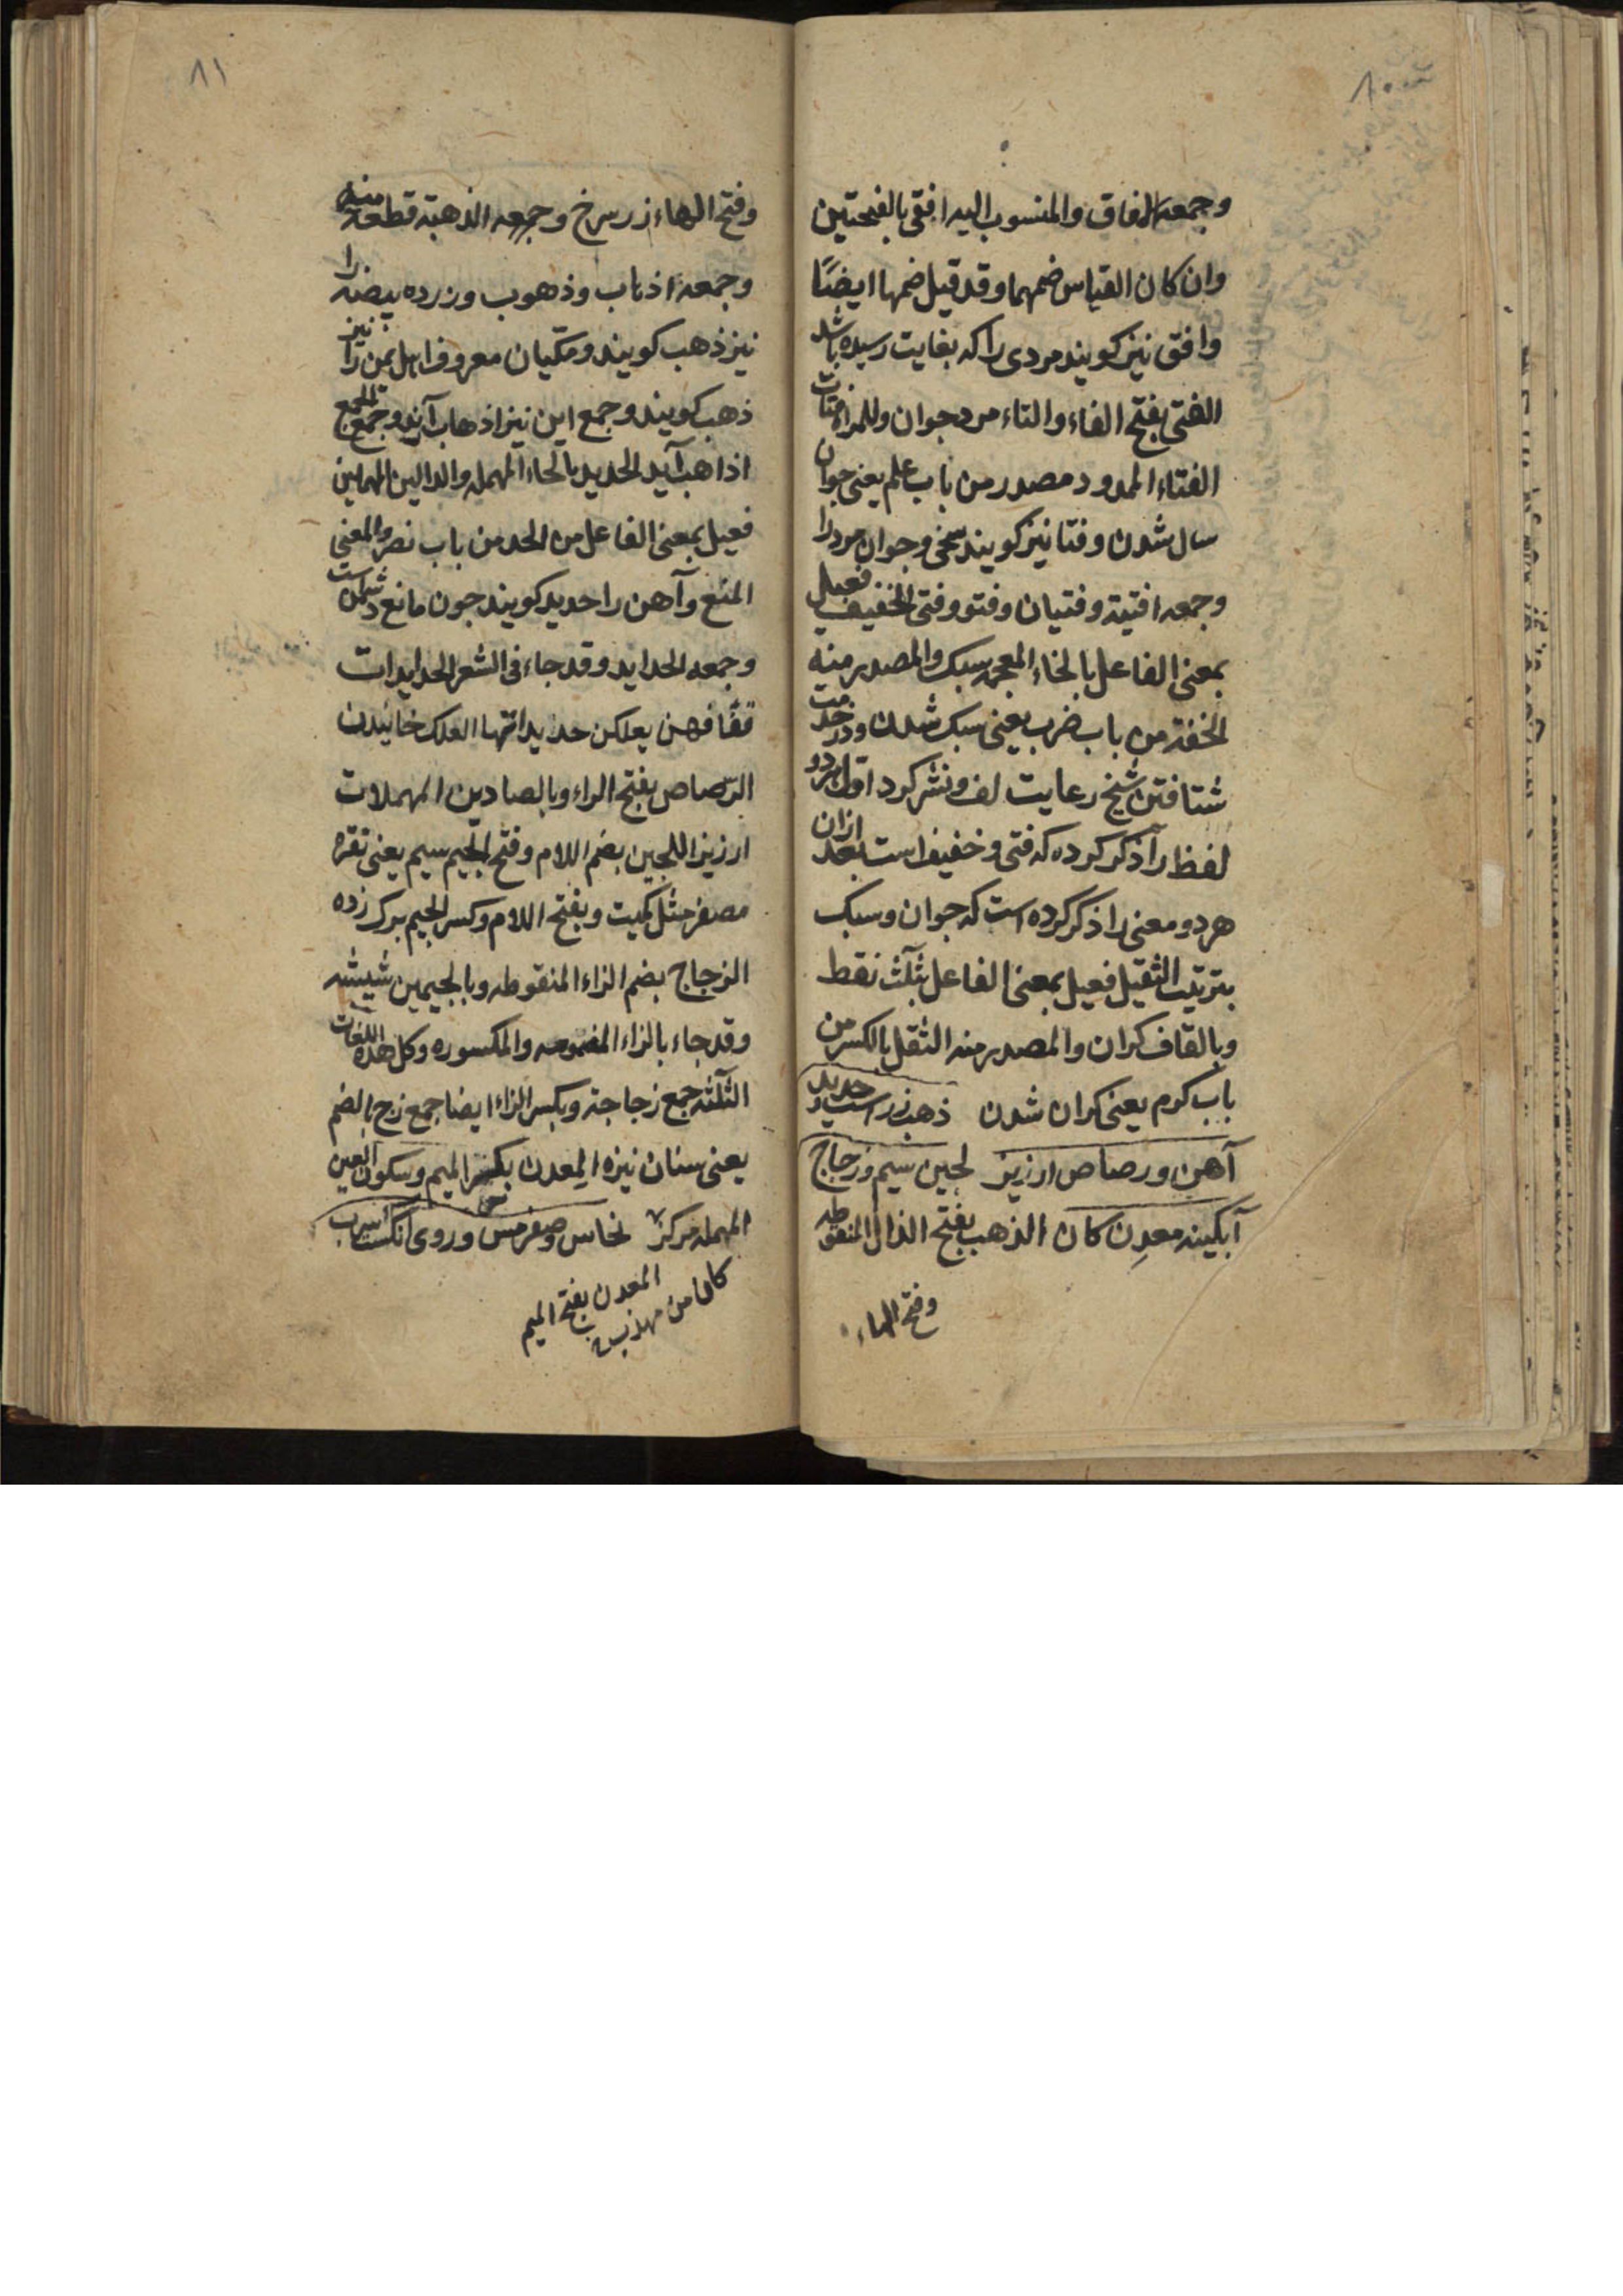 ٨٠
وجمعه الافاق والمنسوب اليه افقى بالفتحتين
وان كان القياس ضمهما وقد قيل ضمها ايضًا
وافق نيز كويند مردى را كه بغايت رسيده باشد
الفتى بفتح الفاء والتاء مرد جوان وللمراة فتات
الفتاء الممدود مصدر من باب علم يعنى جوان
سال شدن وفتا نيز كويند سخى وجوان مرد را
وجمعه افتية وفتيان وفتو وفتى الخفيف فعيل
بمعنى الفاعل بالخاء المعجمه سبك والمصدر منه
الخفة من باب ضرب يعنى سبك شدن ودر خدمت
شتافتن شيخ رعايت لف ونشر كرد اول هر دو
لفظ را ذكر كرده كه فتى وخفيف است بعد ازان
هر دو معنى را ذكر كرده است كه جوان وسبك
بترتيب الثقيل فعيل بمعنى الفاعل بثلث نقط
وبالقاف كران والمصدر منه الثقل بالكسر من
باب كرم يعنى كران شدن ذهب زر است وحديد
آهن ورصاص ارزيز لجين سيم وزجاج
آبكينه معدِن كان الذهب بفتح الذال المنقوطه
وفتح الهاء
٨١
وفتح الهاء زر سرخ وجمعه الذهبة قطعة منه
وجمعه اذهاب وذهوب وزرده بيضه را
نيز ذهب كويند ومكيان معروف اهل يمن را نيز
ذهب كويند وجمع اين نيز اذهاب آيد وجمع الجمع
اذاهب آيد الحديد بالحاء المهمله والدالين المهملين
فعيل بمعنى الفاعل من الحد من باب نصر والمعنى
المنع وآهن را حديد كويند جون مانع دشمن است
وجمعه الحدايد وقد جاء فى الشعر الحدايدات
فهن يعلكن حديداتها العلك خائيدن
الرّصاص بفتح الراء وبالصادين المهملات
ارزيز اللجين بضم اللام وفتح الجيم سيم يعنى نقره
مصغر مثل كميت وبفتح اللام وكسر الجيم برك زده
الزجاج بضم الزاء المنقوطه وبالجيمين شيشه
وقد جاء بالزاء المفتوحه والمكسوره وكل هذه اللغات
الثلثه جمع زجاجة وبكسر الزاء ايضا جمع زج بالضم
يعنى سنان نيزه المِعدن بكسر الميم وسكون العين
المهمله مركز نحاس وصفر مس وروى آنك اسرب
المعدن بفتح الميم
كان من مهذب